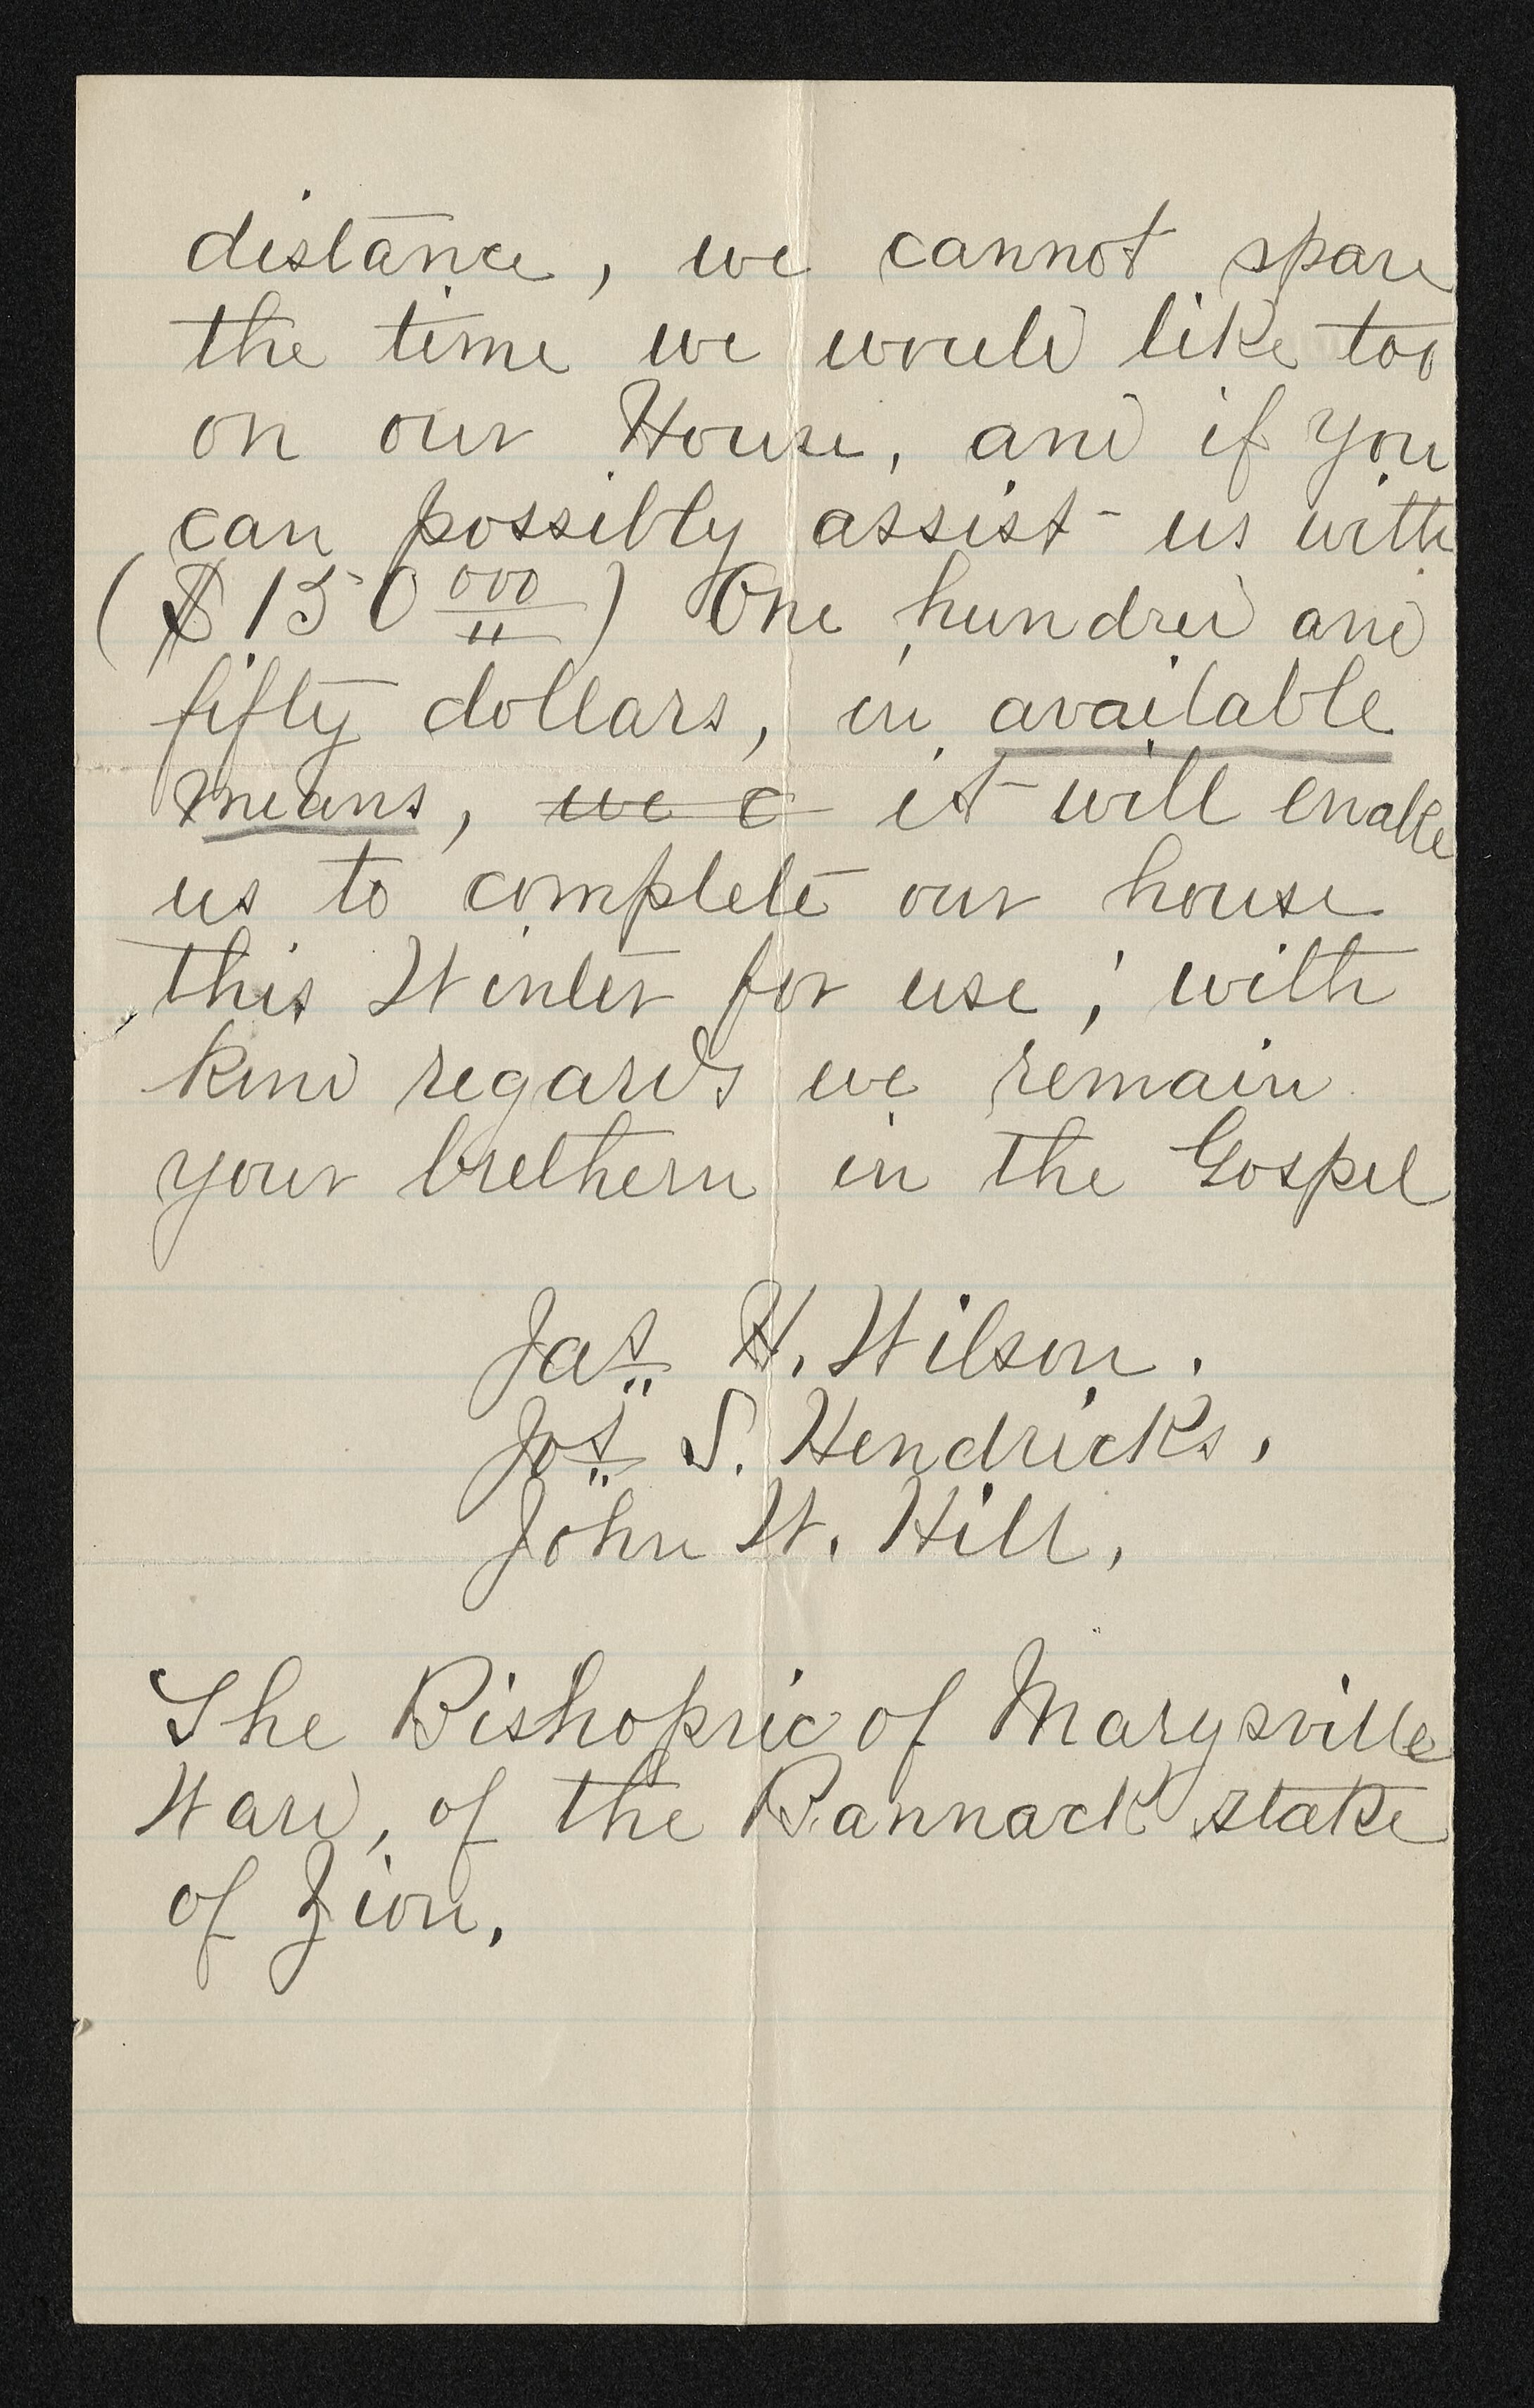 distance, we cannot spare
the time we would like too
on our House, and if you
can possibly assist us with
($150 000) One hundred and
fifty dollars, in available
means, we c it will enable
us to complete our house
this Winter for use; with
kind regards we remain
your brethern in the Gospel
Jas H. Wilson.
Jos S. Hendricks,
John W. Hill,
The Bishopric of Marysville
Ward, of the Bannack stake
of Zion.